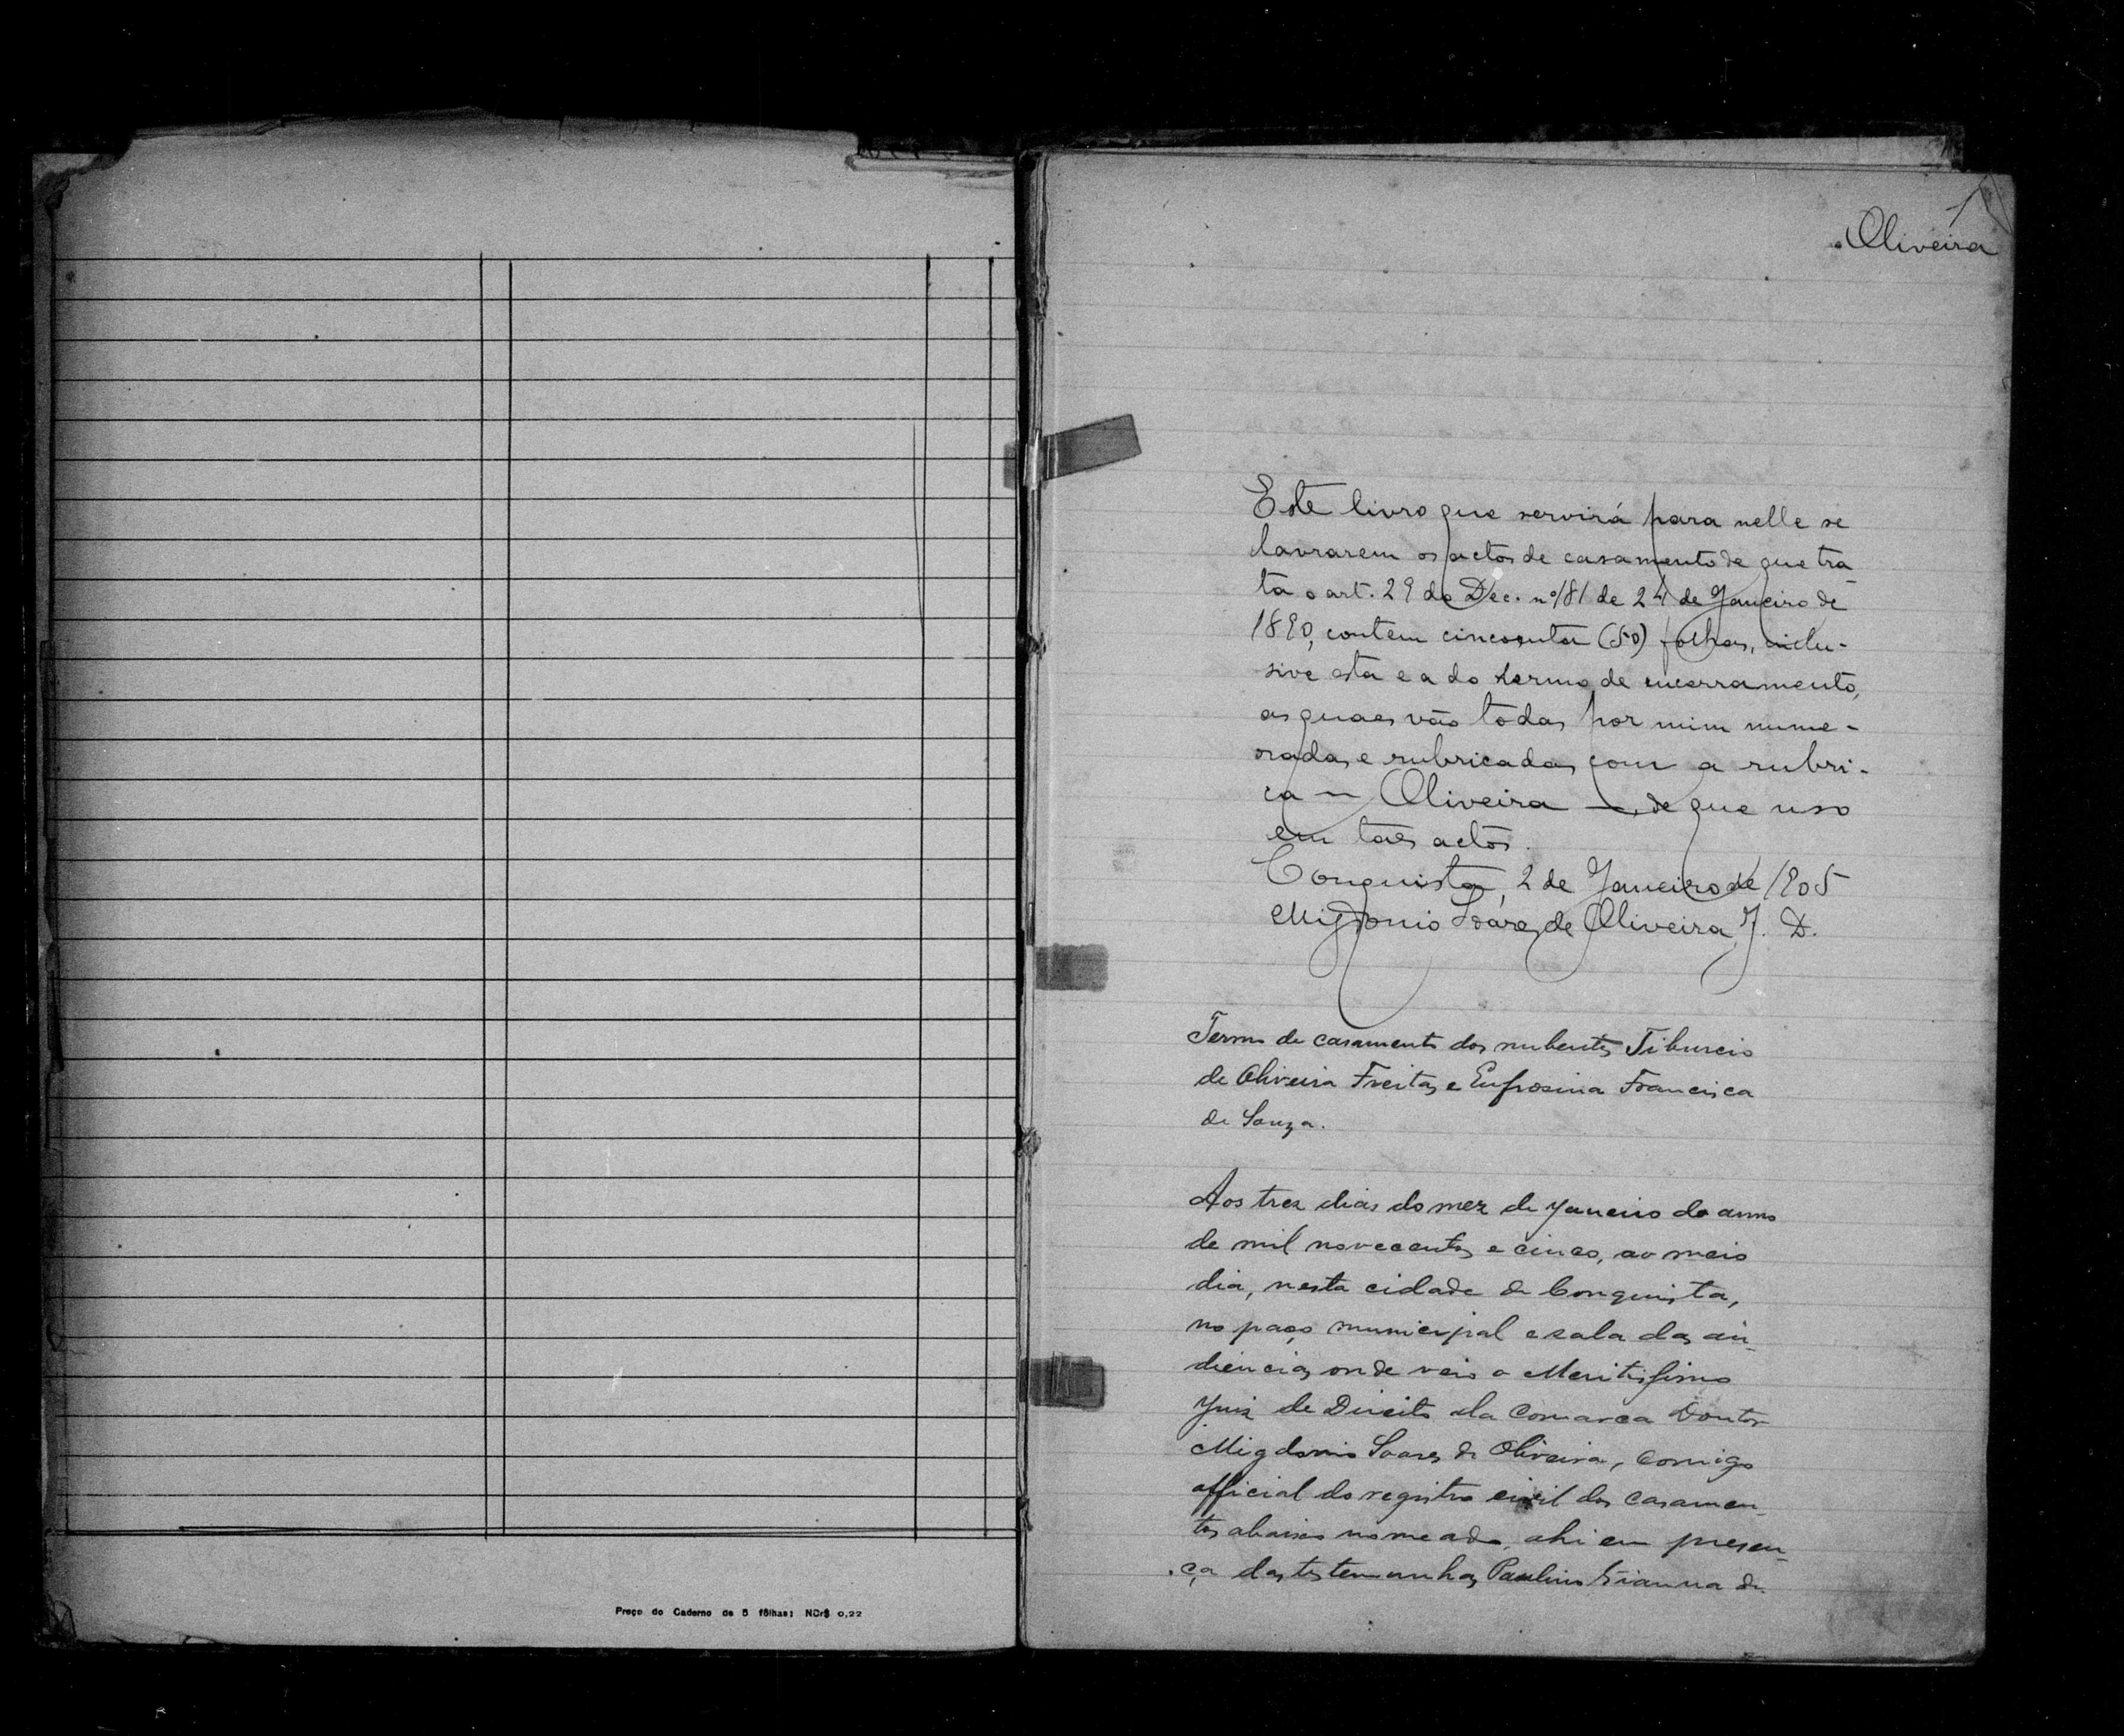 Preço do Caderno de 5 fôlhas: NCr$ 0,22
1
Oliveira
Este livro que servirá para nelle se
lavrarem os actos de casamento de que tra-
ta o art. 29 do Dec. nº 181 de 24 de Janeiro de
1890, contem cincoenta (50) folhas, inclu-
sive esta e a do termo de encerramento,
as quaes vão todas por mim nume-
radas e rubricadas com a rubri-
ca — Oliveira —, de que uso
em taes actos.
Conquista, 2 de Janeiro de 1905
Migdonio Soares de Oliveira, J. D.
Termo de casamento dos nubentes Tiburcio
de Oliveira Freitas e Eufrosina Francisca
de Souza.
Aos tres dias do mez de Janeiro do anno
de mil novecentos e cinco, ao meio
dia, nesta cidade de Conquista,
no paço municipal e sala das au-
diencias onde veio o Meritissimo
Juiz de Direito da Comarca Doutor
Migdonio Soares de Oliveira, comigo
official do registro civil dos casamen-
tos abaixo nomeado, ahi em presen-
ça das testemunhas Paulino Vianna de